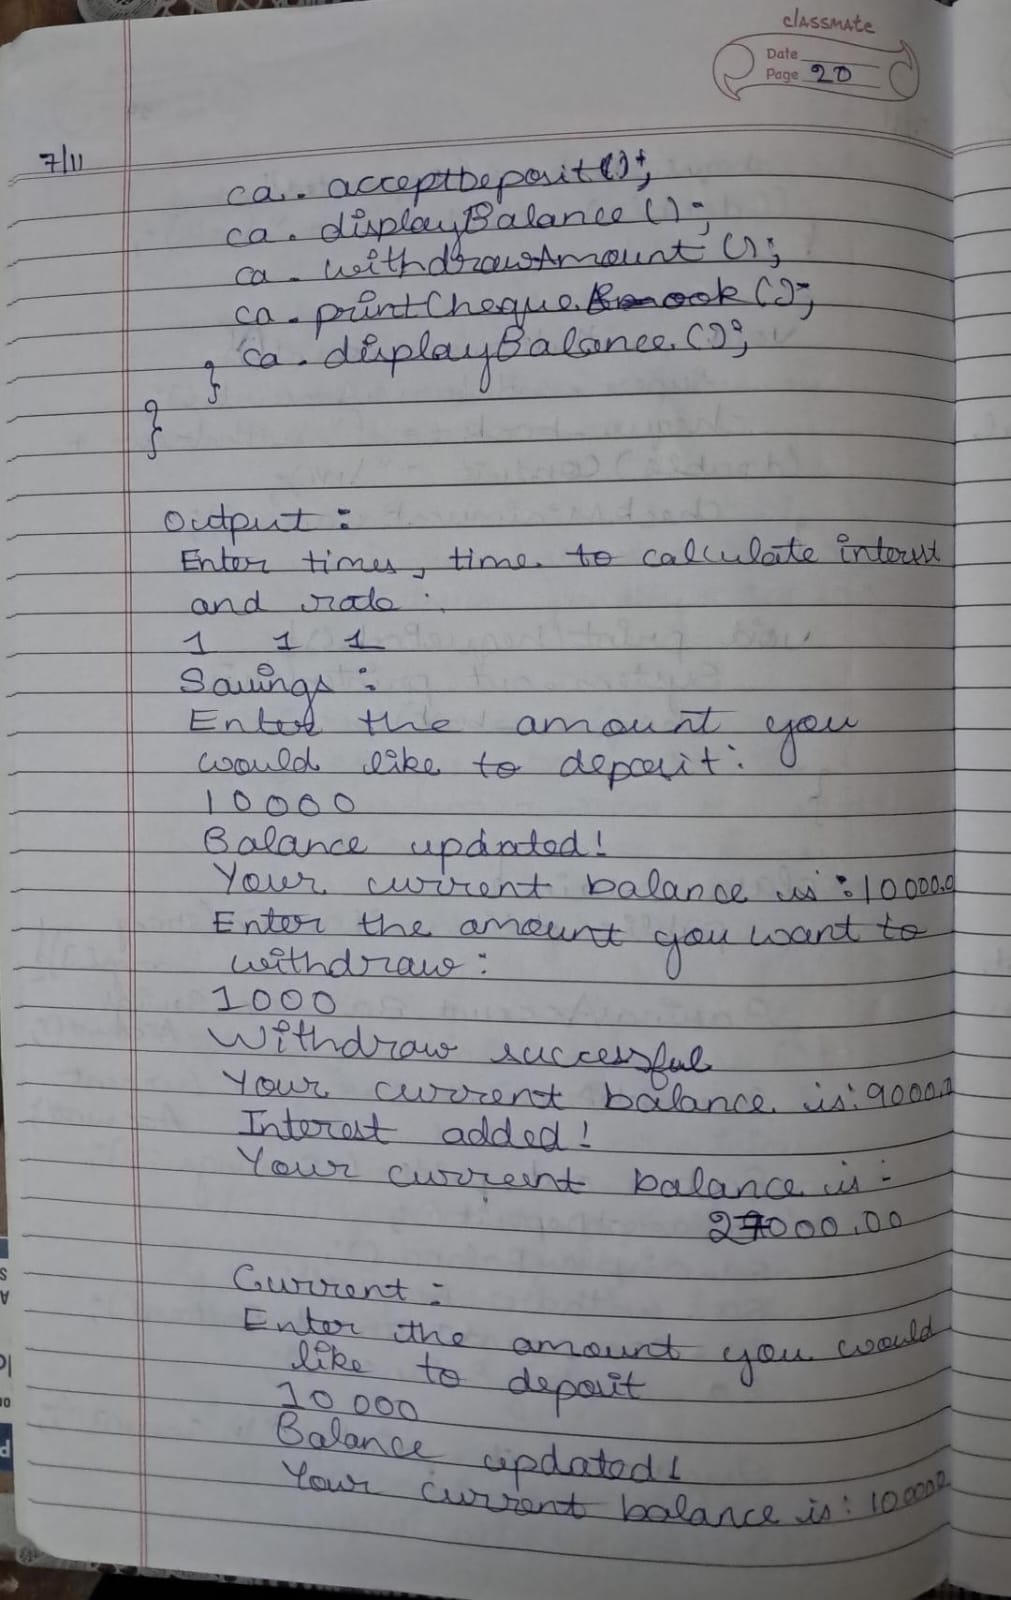 classmate
Date
Page 20
7/11
ca. acceptDeposit();
ca. displayBalance();
ca. withdrawAmount();
ca. printCheque ook();
ca. displayBalance();
}
}
Output:
Enter times, time to calculate interest
and rate:
1 1 1
Savings:
Enter the amount you
would like to deposit:
10000
Balance updated!
Your current balance is: 10000.0
Enter the amount you want to
withdraw:
1000
Withdraw successful
Your current balance is: 9000.0
Interest added!
Your current balance is:
27000.00
Current:
Enter the amount you would
like to deposit
10 000
Balance updated!
Your current balance is: 10000.0